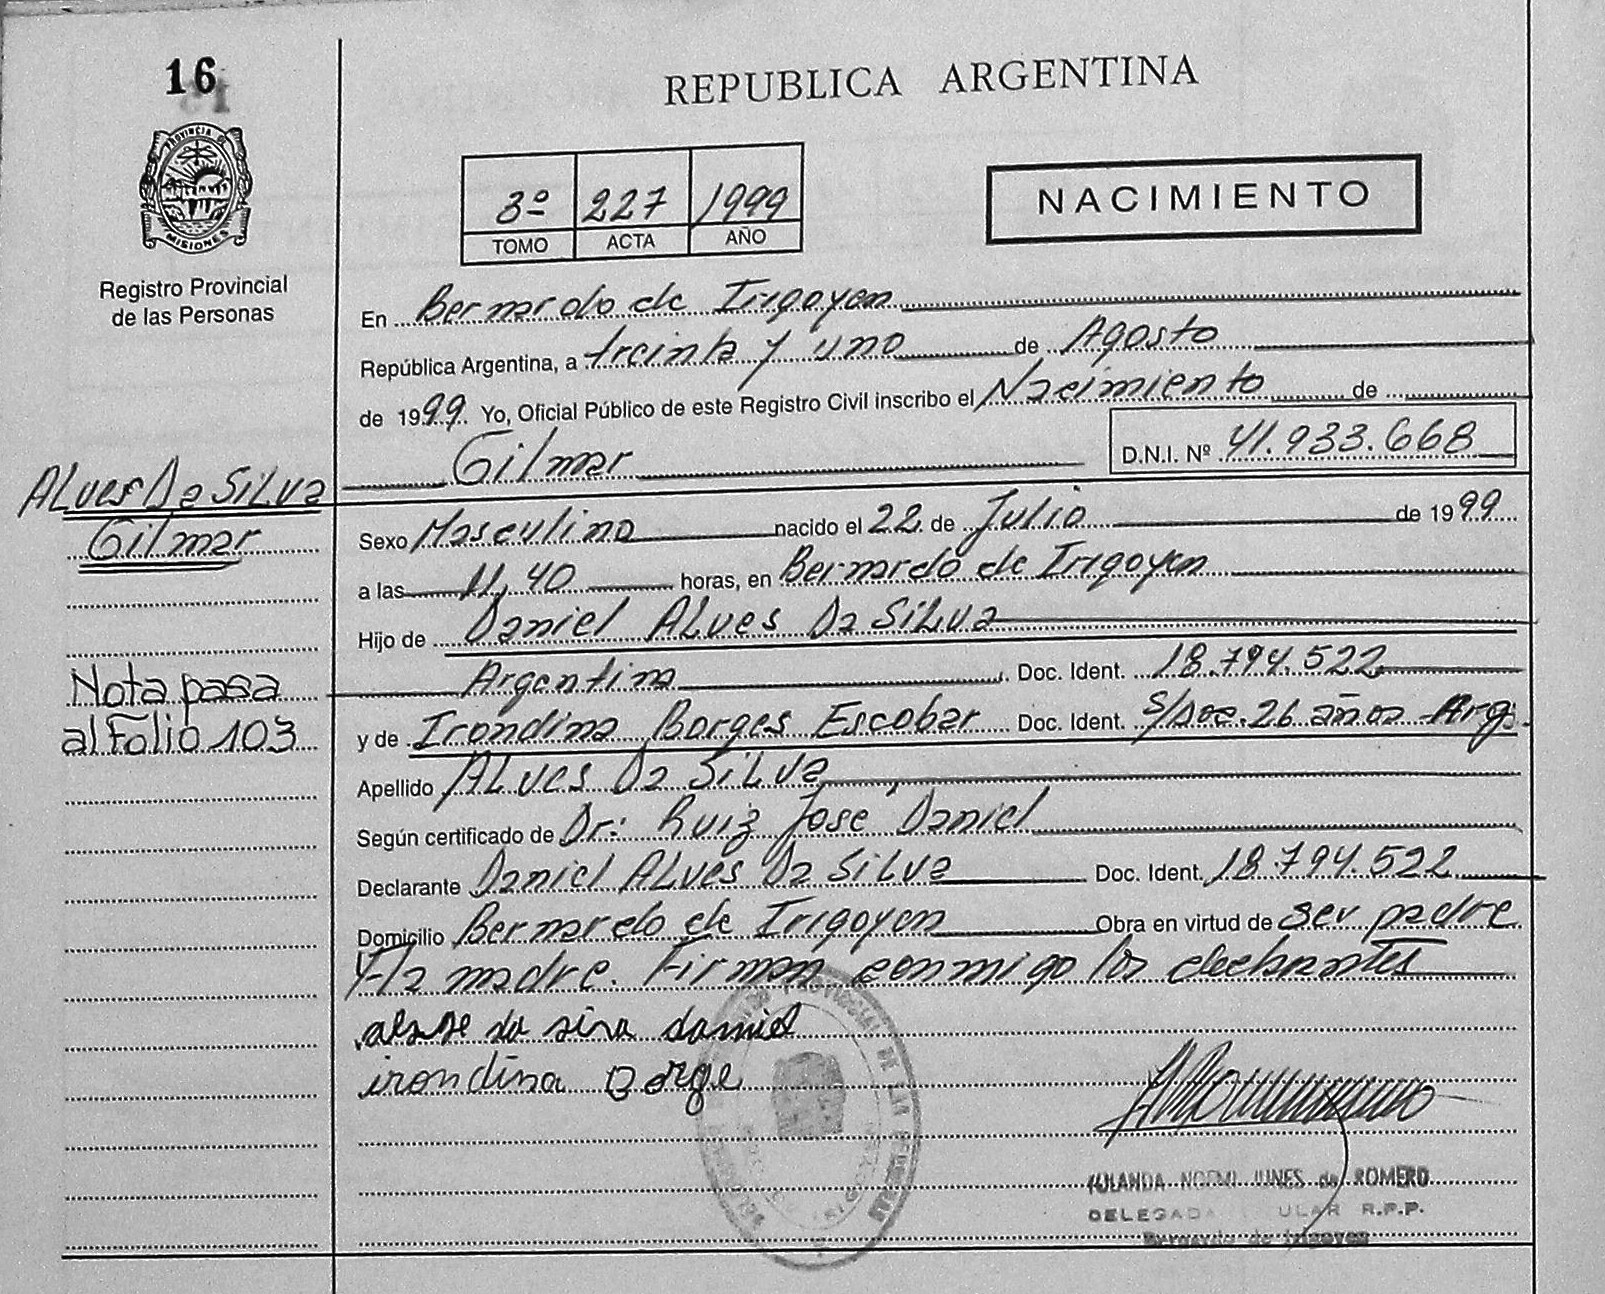 16
REPUBLICA ARGENTINA
PROVINCIA DE
MISIONES
Registro Provincial
de las Personas
3º 227 1999
TOMO ACTA AÑO
NACIMIENTO
En Bernardo de Irigoyen
República Argentina, a treinta y uno de Agosto
de 1999. Yo, Oficial Público de este Registro Civil inscribo el Nacimiento de
Gilmar D.N.I. Nº 41.933.668
ALves Da SiLva
Gilmar
Sexo Masculino nacido el 22 de Julio de 1999
a las 11,40 horas, en Bernardo de Irigoyen
Hijo de Daniel ALves Da SiLva
Argentina Doc. Ident. 18.794.522
Nota pasa
al Folio 103
y de Irondina Borges Escobar Doc. Ident. S/Doc. 26 años Arg.
Apellido ALves Da SiLva
Según certificado de Dr: Ruiz José Daniel
Declarante Daniel ALves Da SiLva Doc. Ident. 18.794.522
Domicilio Bernardo de Irigoyen Obra en virtud de ser padre
y la madre. Firman conmigo los declarantes
da siva daniel
irondina Borge
YOLANDA NOEMI JUNES de ROMERO
DELEGADA R.P.P.
Bernardo de Irigoyen